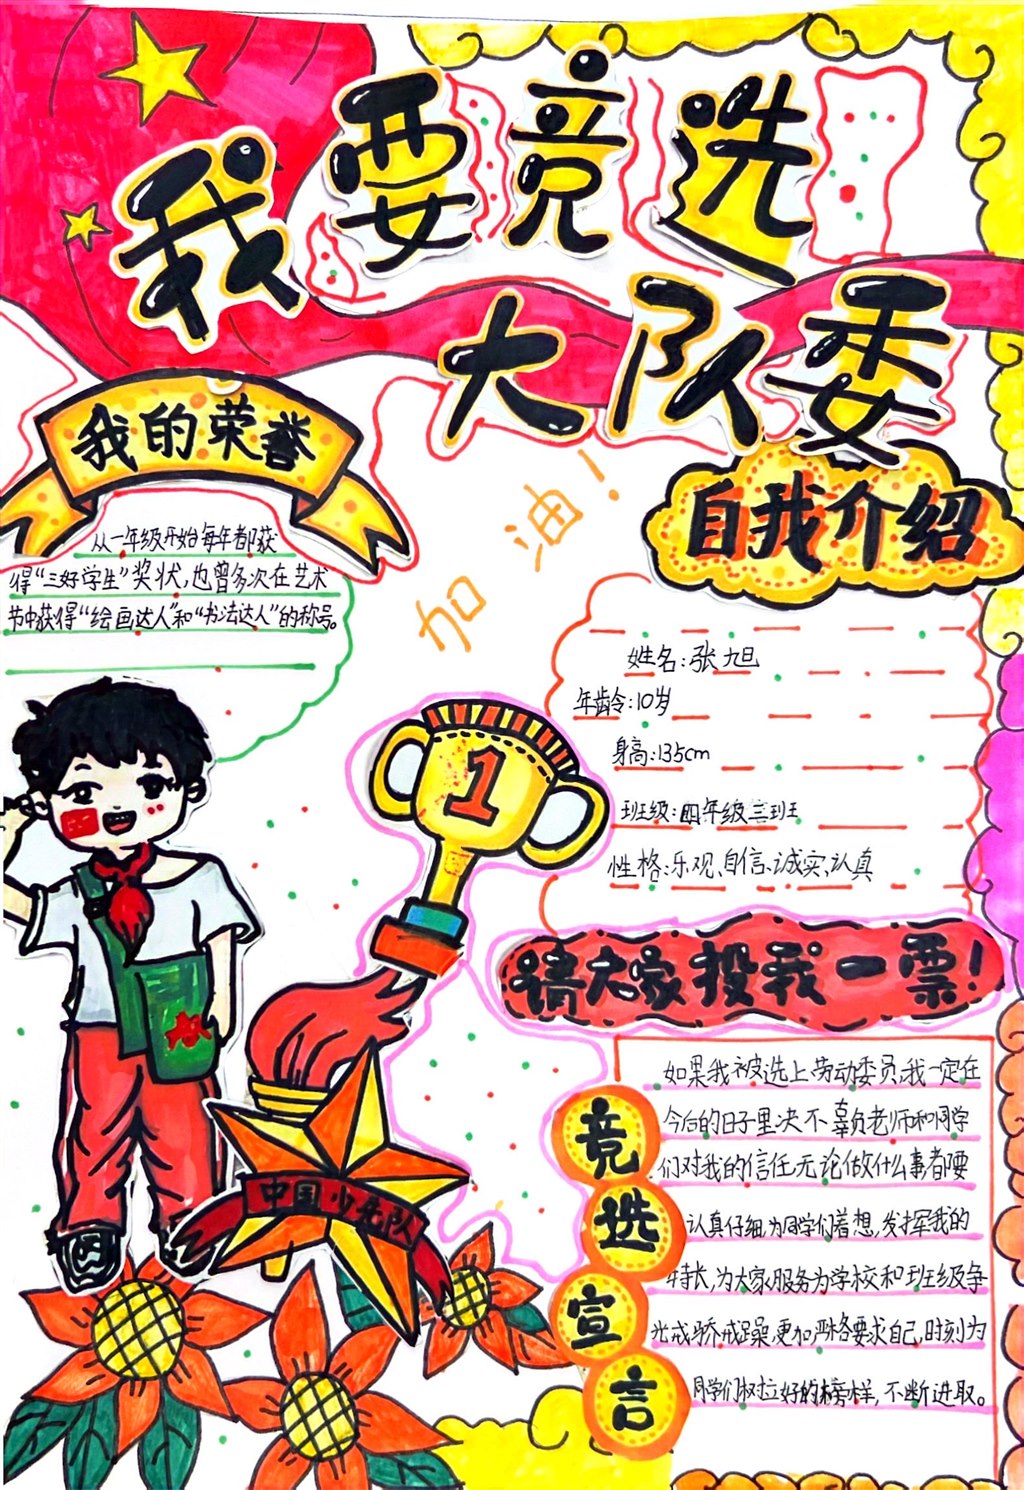 我要竞选
大队委
我的荣誉
从一年级开始每年都获
得“三好学生”奖状,也曾多次在艺术
节中获得“绘画达人”和“书法达人”的称号。
加油!
自我介绍
姓名:张旭
年龄:10岁
身高:135cm
班级:四年级三班
性格:乐观、自信、诚实、认真
1
请大家投我一票!
中国少先队
竞选宣言
如果我被选上劳动委员,我一定在
今后的日子里决不辜负老师和同学
们对我的信任,无论做什么事都要
认真仔细,为同学们着想,发挥我的
特长,为大家服务为学校和班级争
光戒骄戒躁,更加严格要求自己,时刻为
同学们树立好的榜样,不断进取。